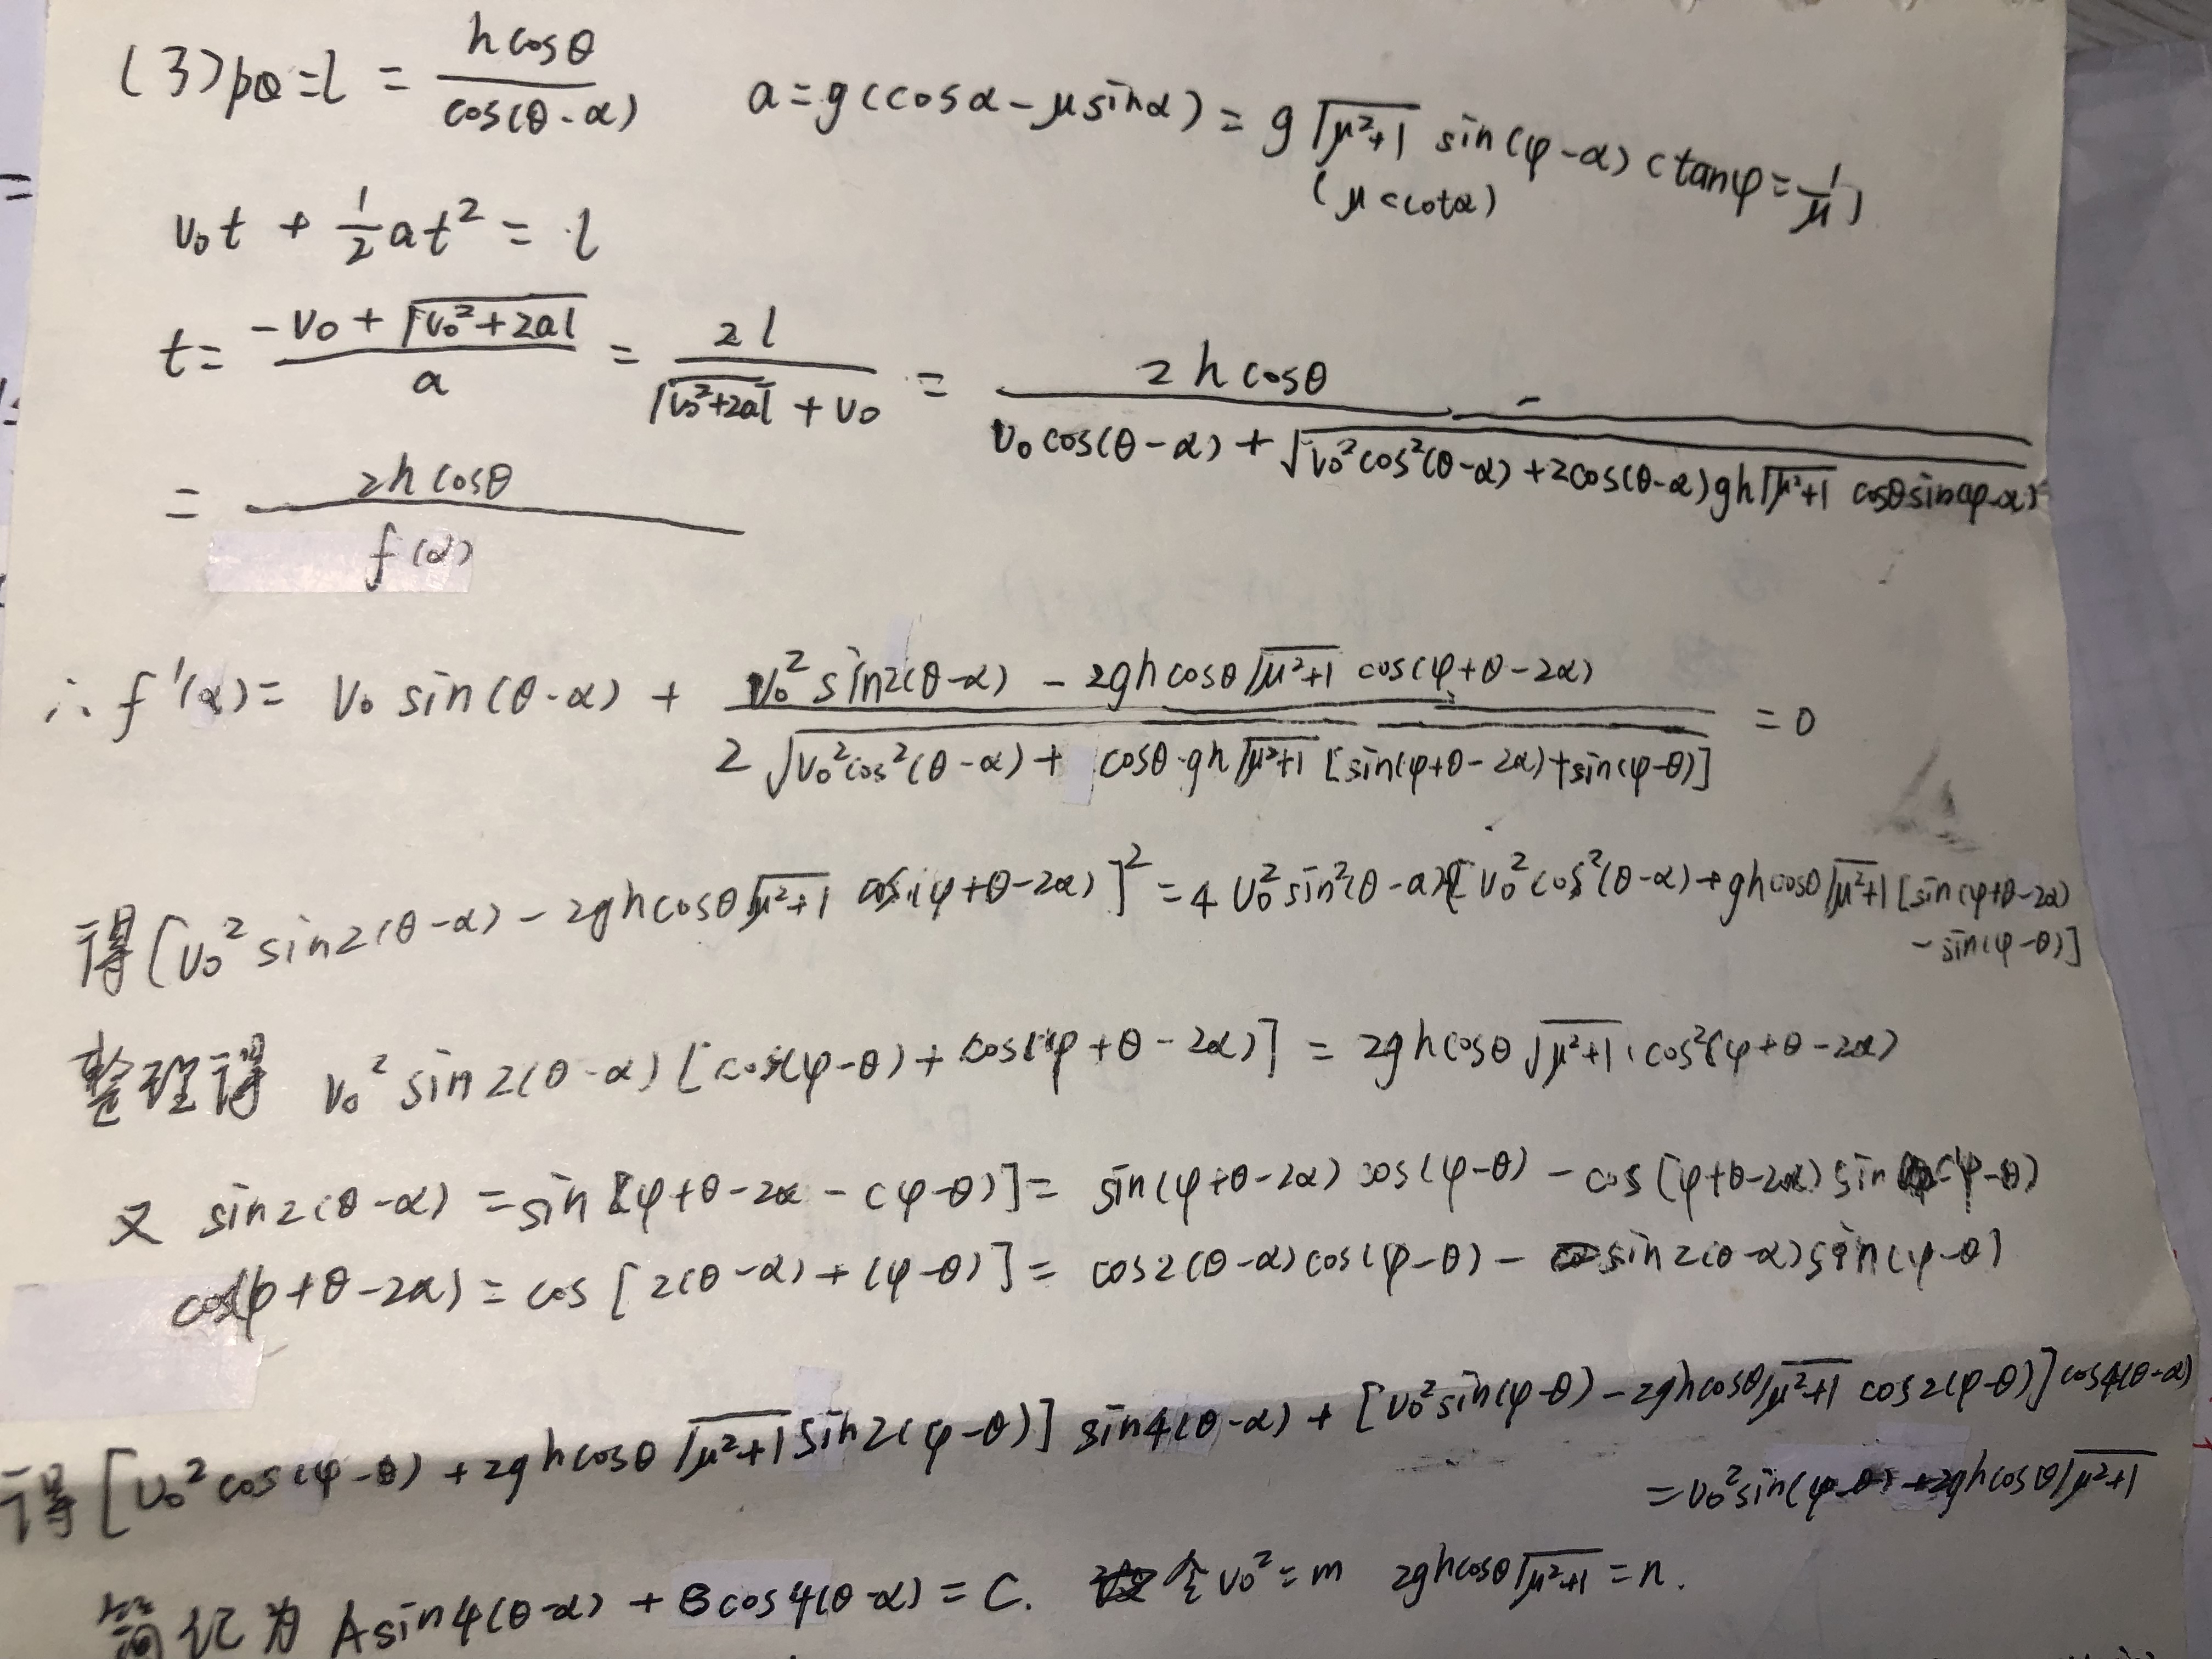 (3) PQ = l = \frac{h cosθ}{cos(θ-α)}   a = g(cosα - μsinα) = g√(μ²+1) sin(φ-α) (tanφ = \frac{1}{μ})
(μ<cotα)
v₀t + \frac{1}{2}at² = l
t = \frac{-v₀ + √(v₀²+2al)}{a} = \frac{2l}{√(v₀²+2al) + v₀} = \frac{2hcosθ}{v₀cos(θ-α) + √(v₀²cos²(θ-α) + 2cos(θ-α)gh√(μ²+1) cosθsin(φ-α))}
= \frac{2hcosθ}{f(α)}
∴ f'(α) = v₀ sin(θ-α) + \frac{v₀² sin2(θ-α) - 2ghcosθ√(μ²+1) cos(φ+θ-2α)}{2√(v₀²cos²(θ-α) + cosθ·gh√(μ²+1) [sin(φ+θ-2α)+sin(φ-θ)])} = 0
得[v₀² sin2(θ-α) - 2ghcosθ√(μ²+1) cos(φ+θ-2α)]² = 4v₀²sin²(θ-α)[v₀²cos²(θ-α)+ghcosθ√(μ²+1)[sin(φ+θ-2α)
-sin(φ-θ)]
整理得 v₀² sin2(θ-α)[cos(φ-θ) + cos(φ+θ-2α)] = 2ghcosθ√(μ²+1)·cos²(φ+θ-2α)
又 sin2(θ-α) = sin[φ+θ-2α-(φ-θ)] = sin(φ+θ-2α)cos(φ-θ) - cos(φ+θ-2α)sin(φ-θ)
cos(φ+θ-2α) = cos[2(θ-α)+(φ-θ)] = cos2(θ-α)cos(φ-θ) - sin2(θ-α)sin(φ-θ)
得[v₀²cos(φ-θ) + 2ghcosθ√(μ²+1) sin2(φ-θ)] sin4(θ-α) + [v₀²sin(φ-θ) - 2ghcosθ√(μ²+1) cos2(φ-θ)]cos4(θ-α)
= v₀²sin(φ-θ) + 2ghcosθ√(μ²+1)
简记为 Asin4(θ-α) + Bcos4(θ-α) = C. 令v₀²=m 2ghcosθ√(μ²+1) = n.